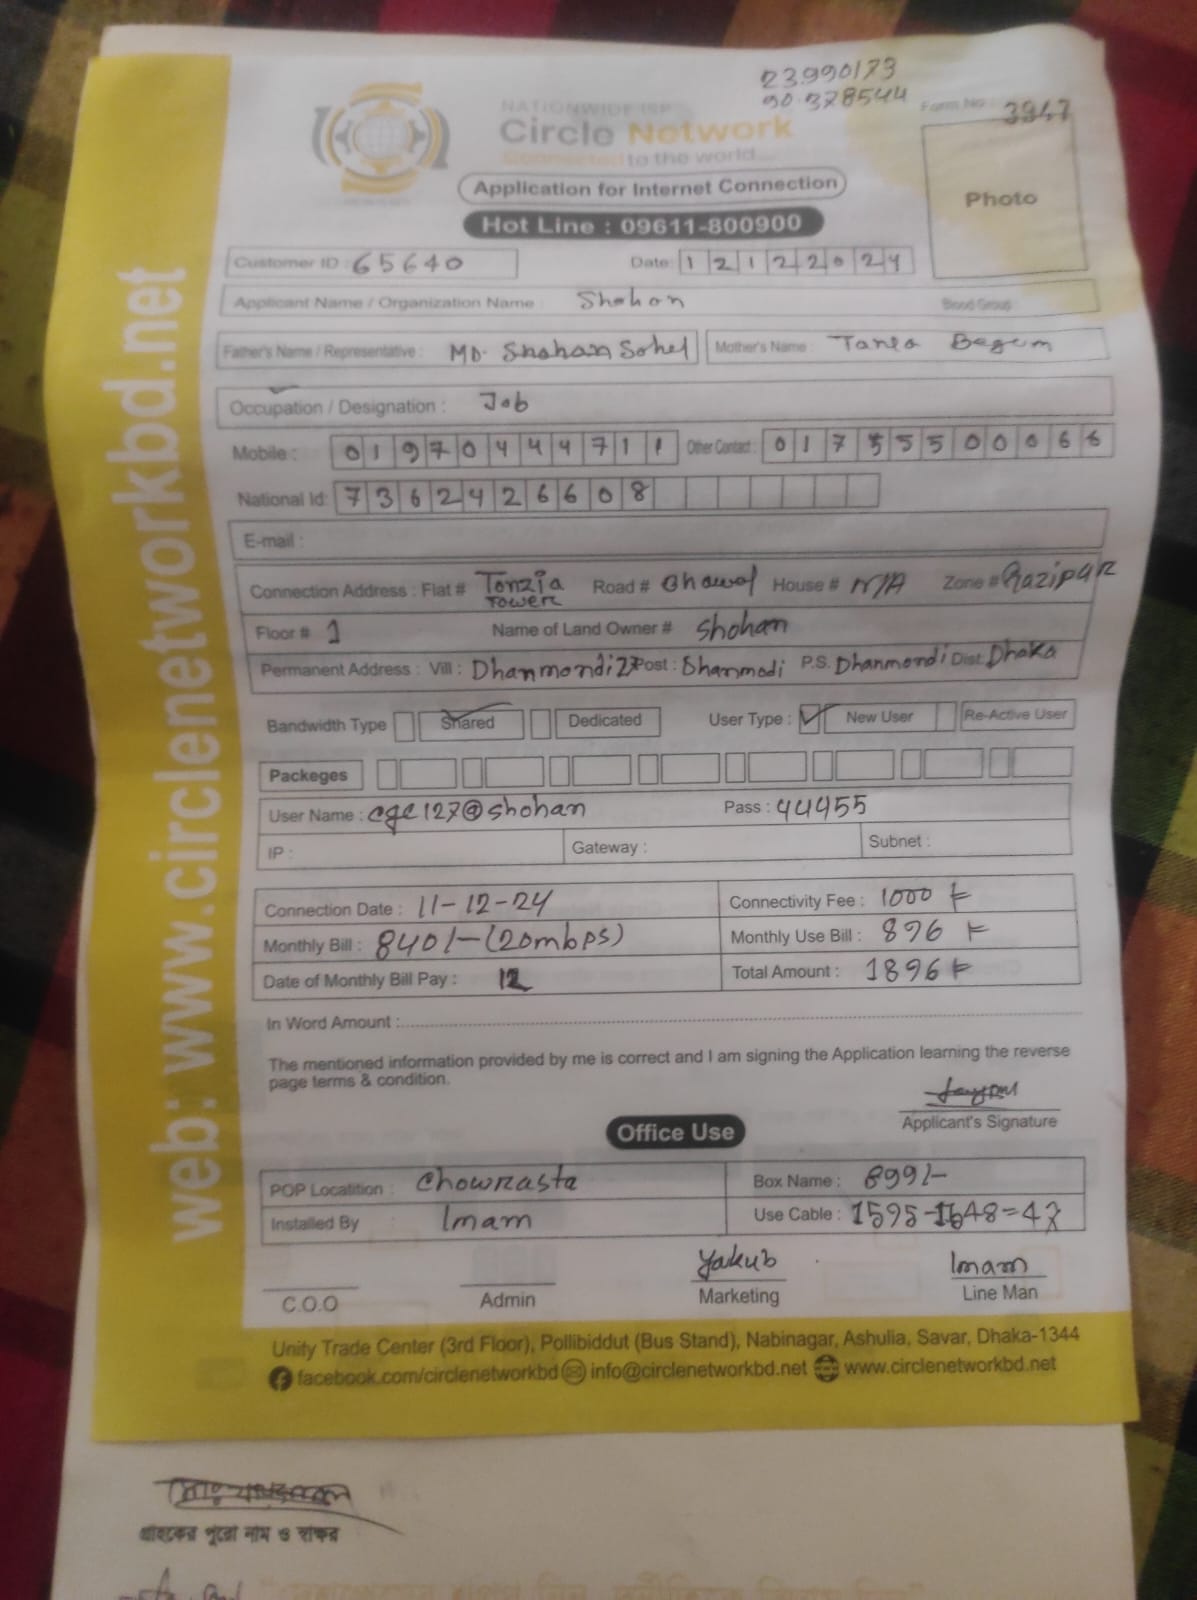 23.990173
90.378544
Form No : 3947
NATIONWIDE ISP
Circle Network
Connected to the world...
Application for Internet Connection
Photo
Hot Line : 09611-800900
Customer ID : 65640 Date: 12122024
Applicant Name / Organization Name : Shohan Blood Group :
Father's Name / Representative : MD. Shohan Sohel Mother's Name : Begum
Occupation / Designation : Job
Mobile : 01970444711 Other Contact : 01755500066
National Id: 7362426608
E-mail :
Connection Address : Flat # Tonzia Tower Road # Ghawal House # N/A Zone # Gazipur
Floor # 1 Name of Land Owner # Shohan
Permanent Address : Vill : Dhanmondi 27 Post : Dhanmodi P.S. Dhanmondi Dist: Dhaka
Bandwidth Type Shared Dedicated User Type : New User Re-Active User
Packeges
User Name : cgc127@shohan Pass : 44455
IP : Gateway : Subnet :
Connection Date : 11-12-24 Connectivity Fee : 1000 ৳
Monthly Bill : 840/-(20mbps) Monthly Use Bill : 896 ৳
Date of Monthly Bill Pay : 12 Total Amount : 1896 ৳
In Word Amount :
The mentioned information provided by me is correct and I am signing the Application learning the reverse
page terms & condition.
Applicant's Signature
Office Use
POP Locatition : Chowrasta Box Name : 899/-
Installed By : Imam Use Cable : 1595-1548=47
Yakub Imam
C.O.O Admin Marketing Line Man
Unity Trade Center (3rd Floor), Pollibiddut (Bus Stand), Nabinagar, Ashulia, Savar, Dhaka-1344
facebook.com/circlenetworkbd info@circlenetworkbd.net www.circlenetworkbd.net
web: www.circlenetworkbd.net
গ্রাহকের পুরো নাম ও স্বাক্ষর